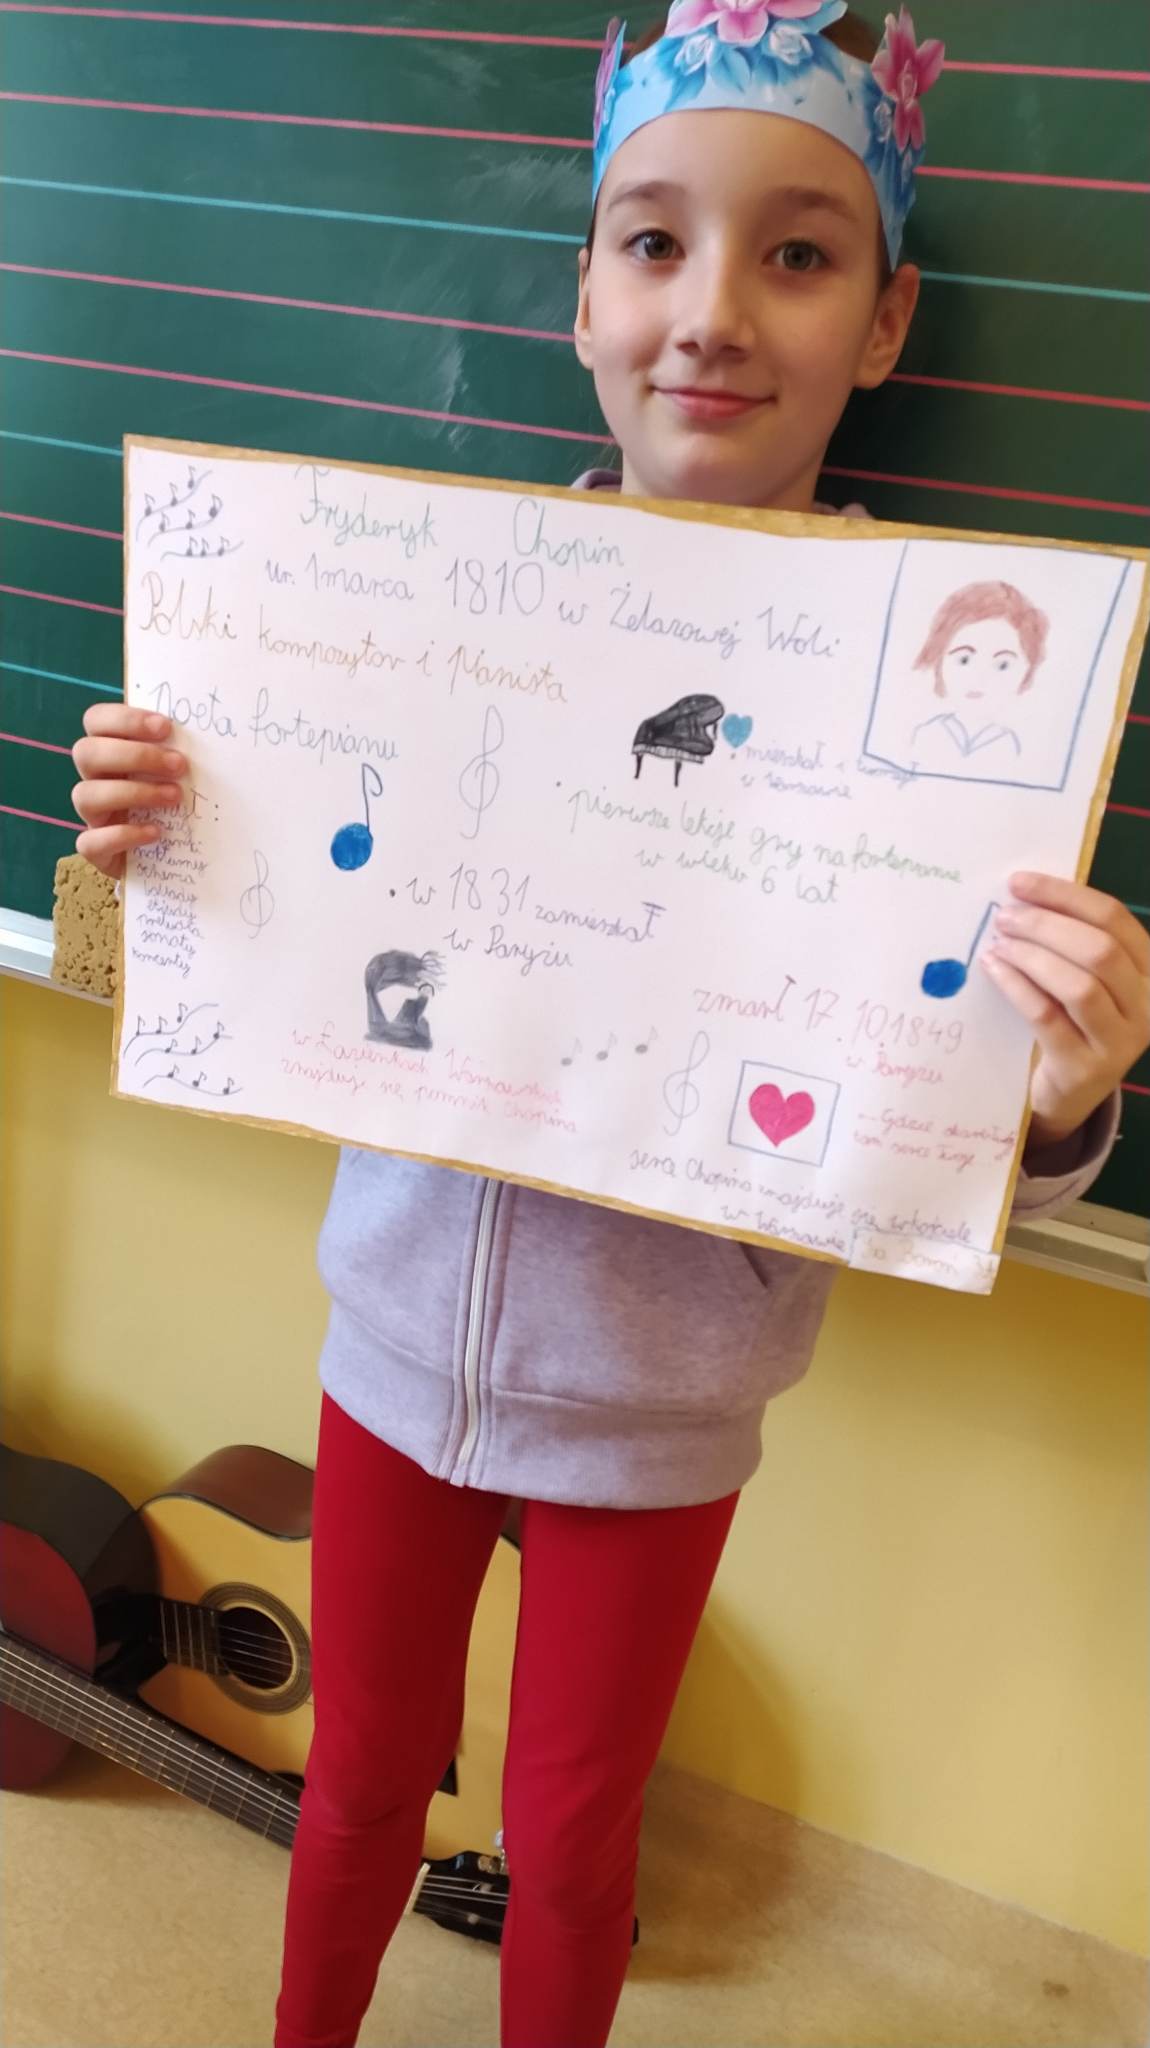 Fryderyk Chopin
ur. 1 marca 1810 w Żelazowej Woli
Polski kompozytor i pianista
• poeta fortepianu
• mieszkał i tworzył
w Warszawie
• pierwsze lekcje gry na fortepianie
w wieku 6 lat
nokturny
scherza
ballady
etiudy
preludia
sonaty
koncerty
• w 1831 zamieszkał
w Paryżu
zmarł 17.10.1849
w Paryżu
w Łazienkach Warszawskich
znajduje się pomnik Chopina
"... Gdzie skarb Twój
tam serce Twoje"
serce Chopina znajduje się w kościele
w Warszawie